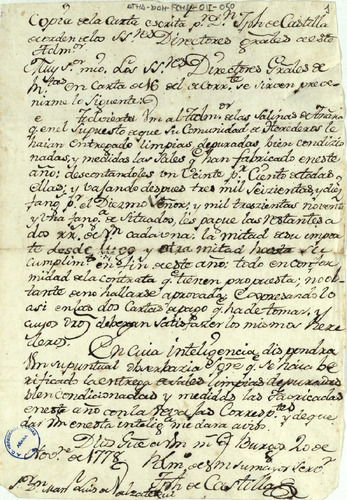 ATHA-DOH-FCMA-011-050
1
Copia de la Carta escrita p.r Dn. Jph de Castilla
de orden de los SS.res Directores Grales de este
Muy S.or mio. Los SS.res Directores Grales de
en Carta de 16 del de corr.te se sirven preve-
nirme lo siguiente
advierte Vm al Adm.or de las Salinas de Añana
q.e en el supuesto de que su Comunidad de Herederos le
haian entregado limpias, depuradas, bien condicio-
nadas, y medidas las Sales q.e han fabricado en este
año; descontandolos un Veinte p.r Ciento de todas
ellas; y vajando despues tres mil Seizientas y diez
fan.s p.r el Diezmo y mil trescientas noventa
y una fan.s de Situados, les pague las restantes a
dos rr.s de v.n cada una: la mitad de su importe
desde luego y otra mitad hasta su
cumplim.to en fin de este año: todo en confor-
midad de la contrata q.e tienen propuesta; no obs-
tante de no hallarse aprovada; Expresandolo
asi en las dos Cartas de pago q.e ha de tomar, y
cuyos dros deberan satisfacer los mismos Here-
deros.
En cuia inteligencia dispondra
Vm su puntual observanzia, y de q.e se haia be-
rificado la entrega de sales limpias, depuradas
bien condicionadas y medidas las fabricadas
en este año con las Correspond.tes, y de que-
dar Vm en esta intelig.a me dara aviso.
Dios G.e a Vm m.s a.s Burgos 20 de
Nov.re de 1778 de Vm su mayor serv.or
Jph de Castilla
S.or Dn. Man.l